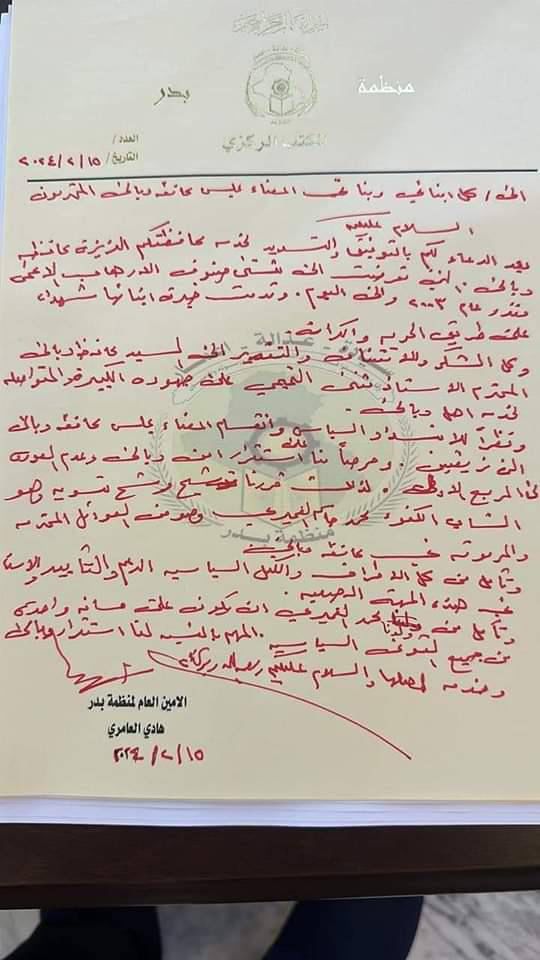 بسم الله الرحمن الرحيم
منظمة
بدر
المكتب المركزي
العدد/
التاريخ/ ٢٠٢٤/٢/١٥
الى/ كل ابنائي وبناتي اعضاء مجلس محافظة ديالى المحترمون
السلام عليكم
بعد الدعاء لكم بالتوفيق والتسديد لخدمة محافظتكم العزيزة محافظة
ديالى .. التي تعرضت الى شتى صنوف الارهاب الاعمى
ومنذ عام ٢٠٠٣ والى اليوم . وقدمت خيرة ابنائها شهداء
على طريق الحرية والكرامة
وكل الشكر والامتنان والتقدير الى السيد محافظ ديالى
المحترم الاستاذ مثنى التميمي على جهوده الكبيرة والمتواصلة
لخدمة اهل ديالى .
ونظراً للانسداد السياسي وانقسام اعضاء مجلس محافظة ديالى
الى فريقين . وحرصاً منا على استقرار امن ديالى وعدم العودة
الى المربع الاول . لذلك قررنا ترشيح مرشح تسوية وهو
الشاب الكفوء محمد جاسم العميري وهو من العوائل المحترمة
والمرموقة في محافظة ديالى
ونأمل من كل الاطراف والكتل السياسية الدعم والتأييد والاسناد
في هذه المهمة الوطنية.
ونأمل من ولدنا محمد العميري ان يكون على مسافة واحدة
من جميع القوى السياسية . المهم بالنسبة لنا استقرار ديالى
وخدمة اهلها والسلام عليكم ورحمة الله وبركاته
الامين العام لمنظمة بدر
هادي العامري
٢٠٢٤/٢/١٥
عدالة
منظمة بدر